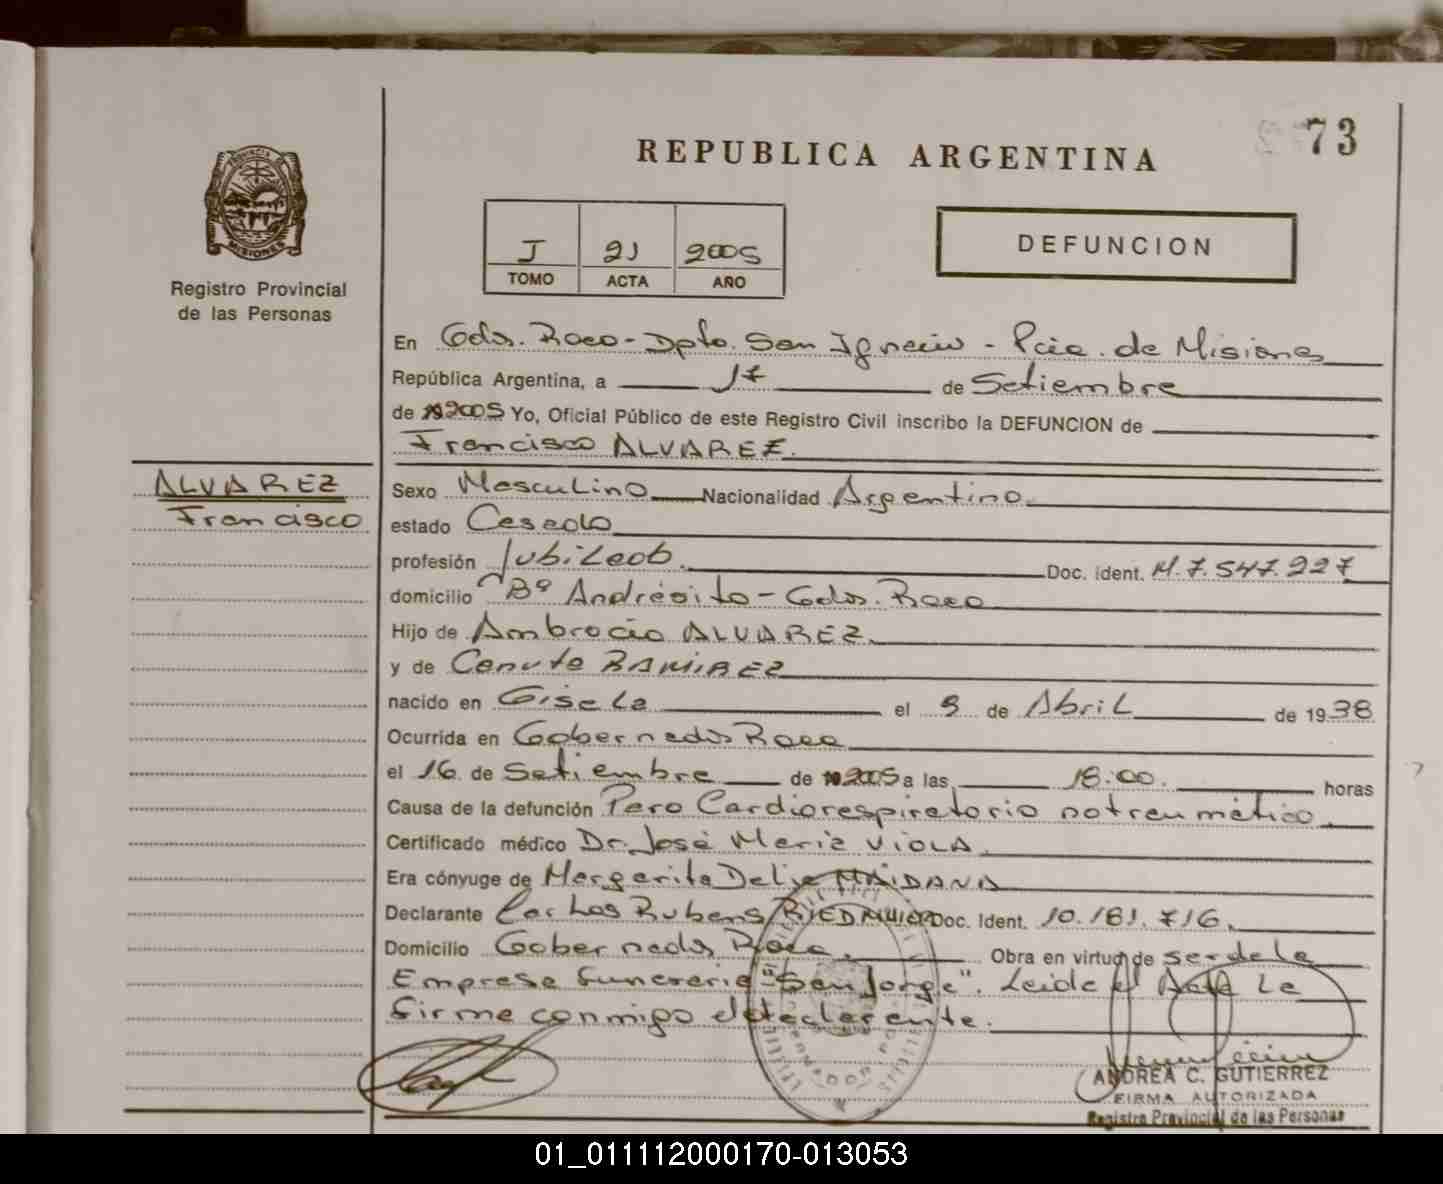 73
REPUBLICA ARGENTINA
PROVINCIA DE
MISIONES
Registro Provincial
de las Personas
I 21 2005
TOMO ACTA AÑO
DEFUNCION
En Gdor. Roca - Dpto. San Ignacio - Pcia. de Misiones
República Argentina, a 17 de Setiembre
de 2005 Yo, Oficial Público de este Registro Civil inscribo la DEFUNCION de
Francisco ALVAREZ.
ALVAREZ
Francisco
Sexo Masculino Nacionalidad Argentino
estado Casado
profesión Jubilado. Doc. ident. M.7.547.227
domicilio Bº Andresito - Gdor. Roca
Hijo de Ambrocio ALVAREZ.
y de Canuta RAMIREZ
nacido en Gisela el 9 de Abril de 1938
Ocurrida en Gobernador Roca
el 16 de Setiembre de 2005 a las 18:00. horas
Causa de la defunción Paro Cardiorespiratorio notraumático
Certificado médico Dr. José María VIOLA.
Era cónyuge de Margarita Delia MAIDANA
Declarante Carlos Rubens RIEDMULLER Doc. Ident. 10.181.716.
Domicilio Gobernador Roca. Obra en virtud de ser de la
Empresa funeraria "San Jorge". Leida el Acta La
firma conmigo el declarante.
ANDREA C. GUTIERREZ
FIRMA AUTORIZADA
Registro Provincial de las Personas
01_011112000170-013053